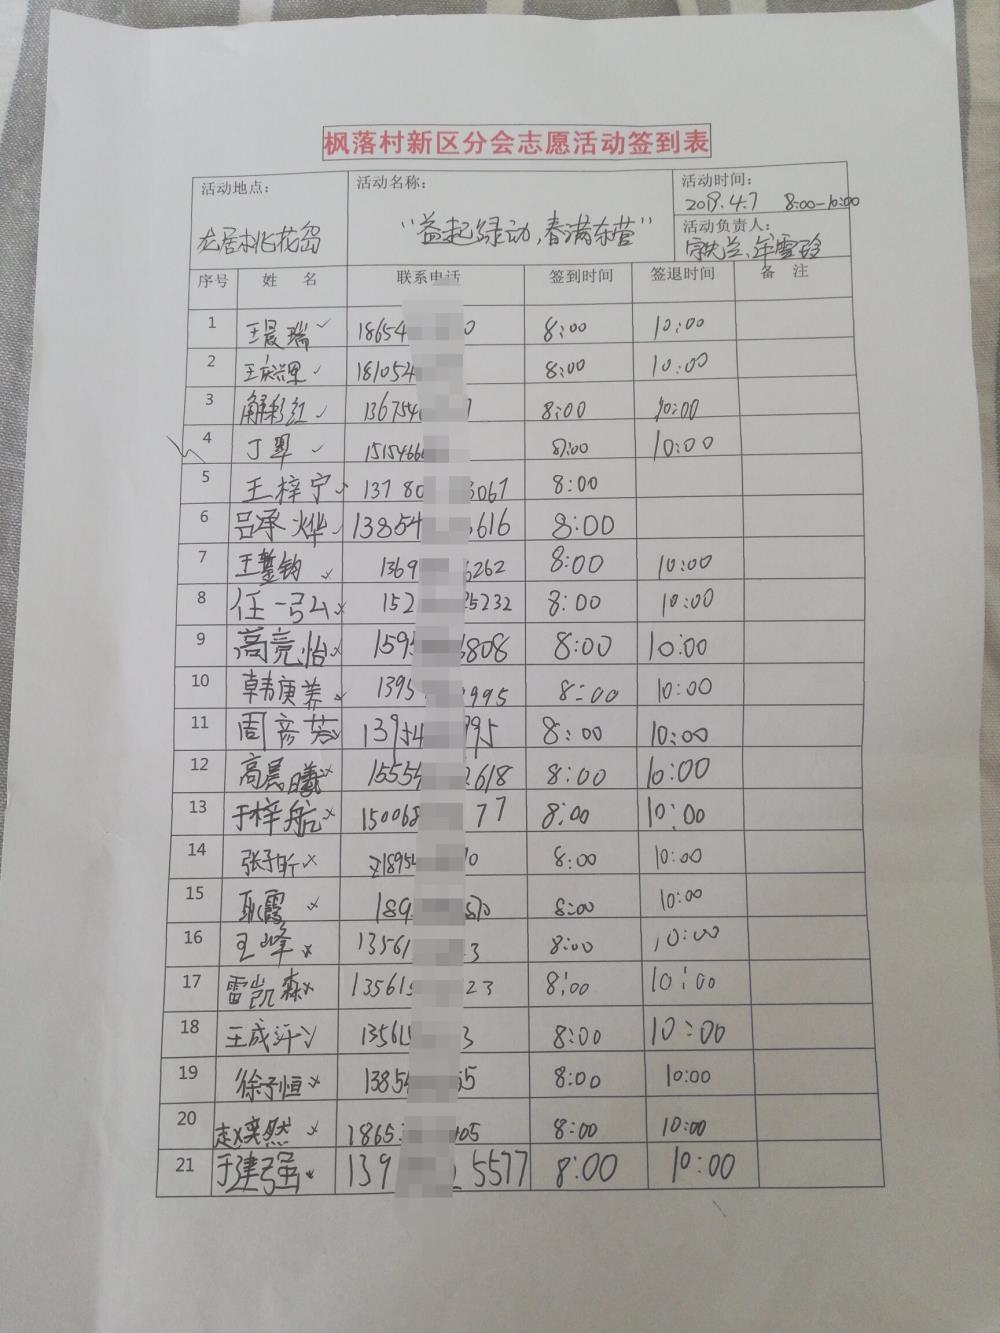 枫落村新区分会志愿活动签到表
活动地点： 活动名称： 活动时间：
龙居桃花岛 “益起绿动，春满东营” 2019.4.7 8:00-10:00
活动负责人：
序号 姓 名 联系电话 签到时间 签退时间 备 注
1 王晨瑞 18654 0 8:00 10:00
2 181054 8:00 10:00
3 解彩红 136754 8:00 10:00
4 丁翠 1515466 8:00 10:00
5 王梓宁 13780 3067 8:00
6 吕承烨 13854 616 8:00
7 王蓥钧 1369 6262 8:00 10:00
8 任一弘 152 25232 8:00 10:00
9 高竞怡 159 808 8:00 10:00
10 韩庚养 1395 995 8:00 10:00
11 周彦芳 13954 95 8:00 10:00
12 高晨曦 15554 2618 8:00 10:00
13 于梓航 150068 77 8:00 10:00
14 张子昕 18954 0 8:00 10:00
15 耿霞 189 8:00 10:00
16 王峰 13561 3 8:00 10:00
17 雷凯森 135615 23 8:00 10:00
18 王成 13561 3 8:00 10:00
19 徐子恒 1385 55 8:00 10:00
20 赵奕然 1865 05 8:00 10:00
21 于建强 139 5577 8:00 10:00